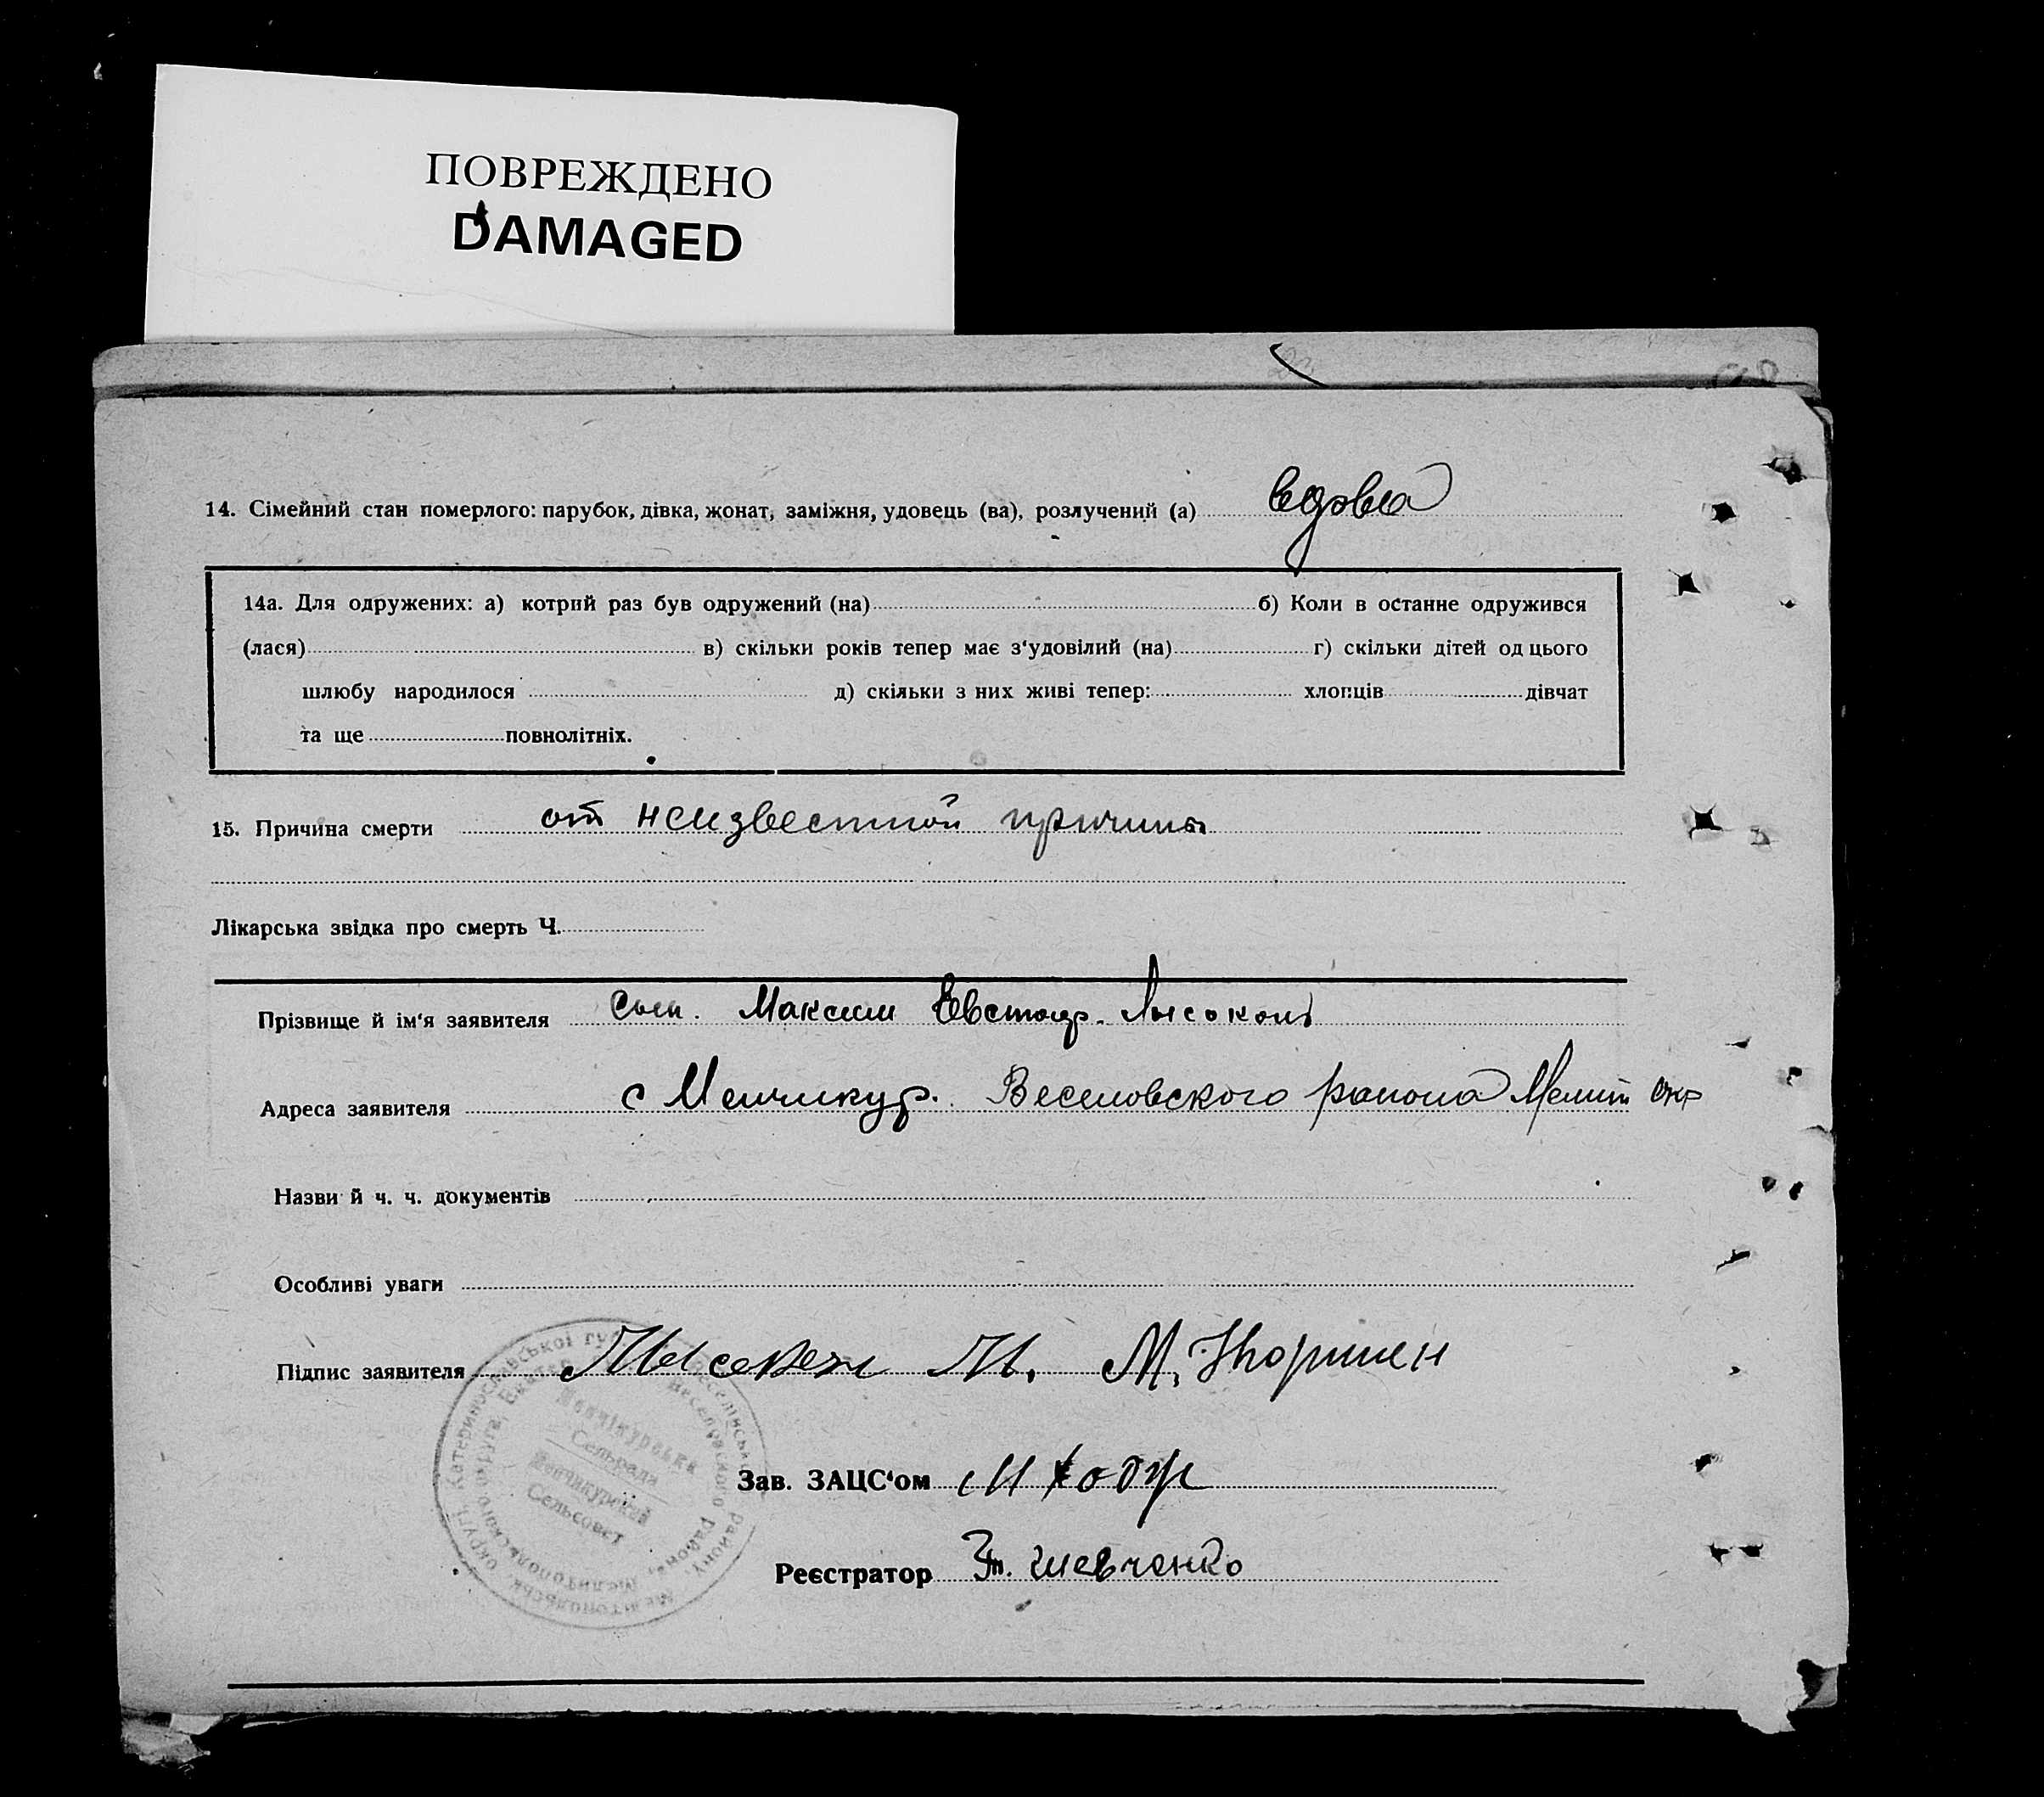 ПОВРЕЖДЕНО
DAMAGED
14. Сімейний стан померлого: парубок, дівка, жонат, заміжня, удовець (ва), розлучений (а) вдова
14а. Для одружених: а) котрий раз був одружений (на) б) Коли в останне одружився
(лася) в) скільки років тепер має з‘удовілий (на) г) скільки дітей од цього
шлюбу народилося д) скільки з них живі тепер: хлопців дівчат
та ще повнолітніх.
15. Причина смерти от неизвестной причины
Лікарська звідка про смерть Ч.
Прізвище й ім‘я заявителя сын. Максим Евстафр. Лысоконь
Адреса заявителя с Менчикур. Веселовского района Мелит окр
Назви й ч. ч. документів
Особливі уваги
Підпис заявителя М.
Зав. ЗАЦС‘ом
Реєстратор Шевченко
Менчікурська
Сельрада
Менчикурский
Сельсовет